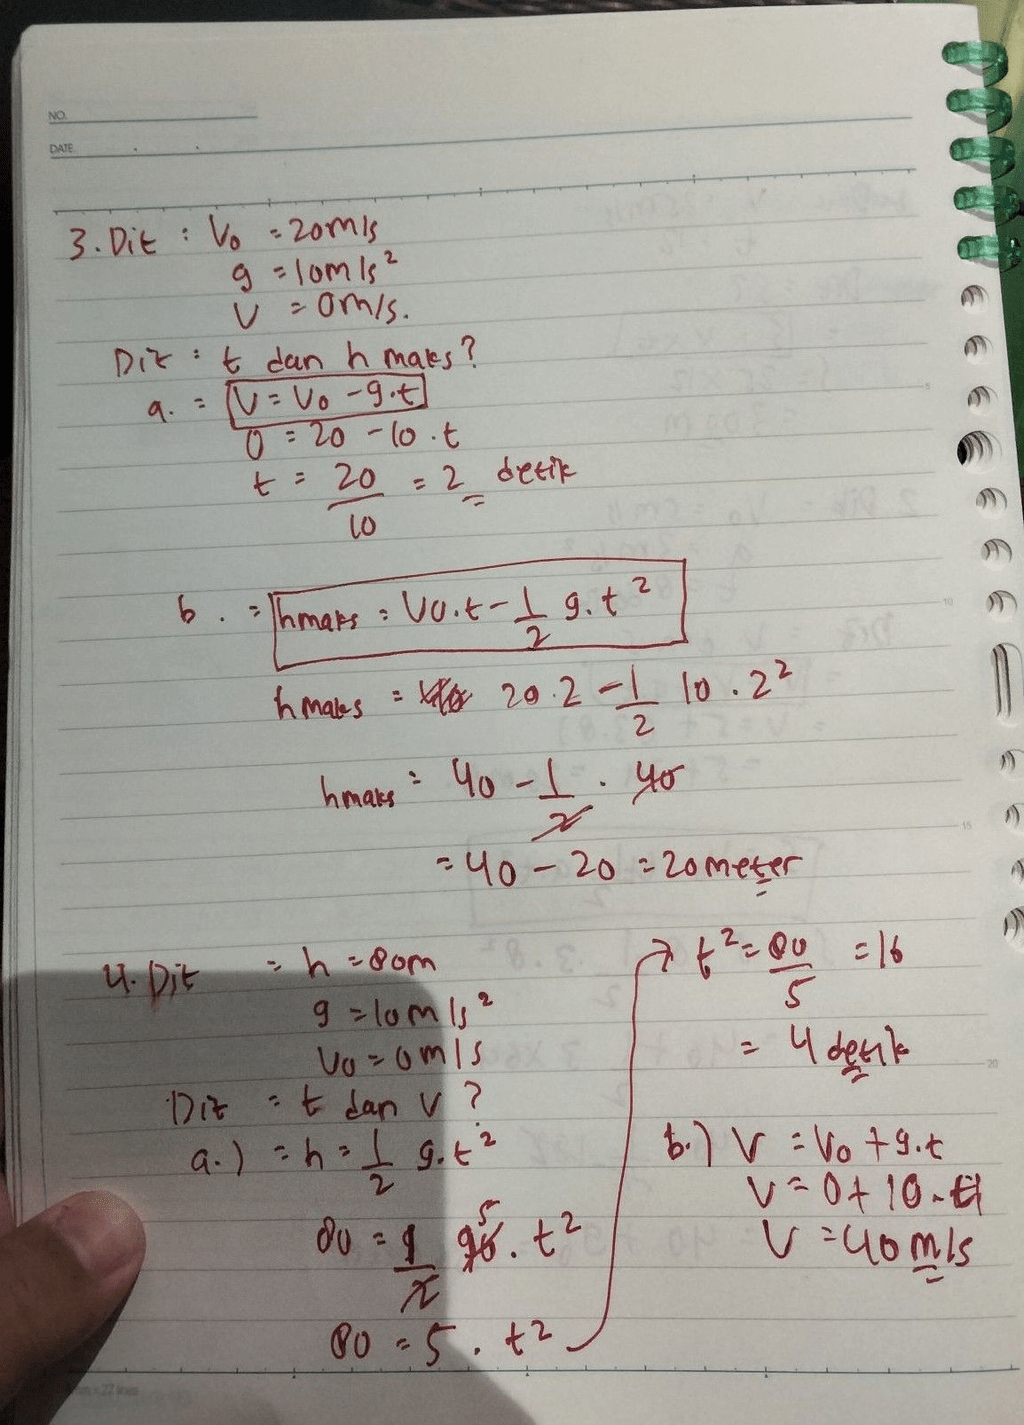 NO.
DATE
3. Dit : V₀ = 20 m/s
g = 10 m/s²
V = 0 m/s.
Dit : t dan h maks?
a. = V = V₀ - g.t
0 = 20 - 10 . t
t = 20/10 = 2 detik
b. = hmaks = V₀.t - 1/2 g.t²
hmaks = 20.2 - 1/2 10 . 2²
hmaks = 40 - 1/2 . 40
= 40 - 20 = 20 meter
4. Dit = h = 80m
g = 10 m/s²
V₀ = 0 m/s
Dit = t dan v?
a.) = h = 1/2 g.t²
80 = 1/2 10 5 . t²
80 = 5 . t²
→ t² = 80/5 = 16
= 4 detik
b.) V = V₀ + g.t
V = 0 + 10 . 4
V = 40 m/s